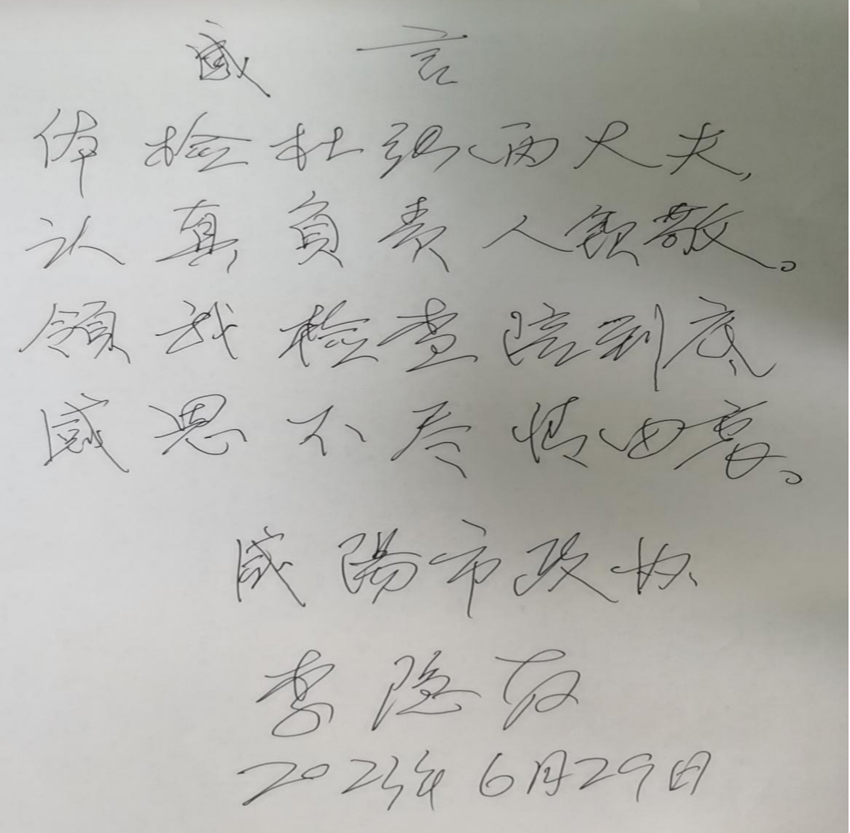 感言
体检杜张两大夫,
认真负责人钦敬。
領我检查陪到底
感恩不尽情由衷。
咸陽市政协
李隐友
2023年6月29日